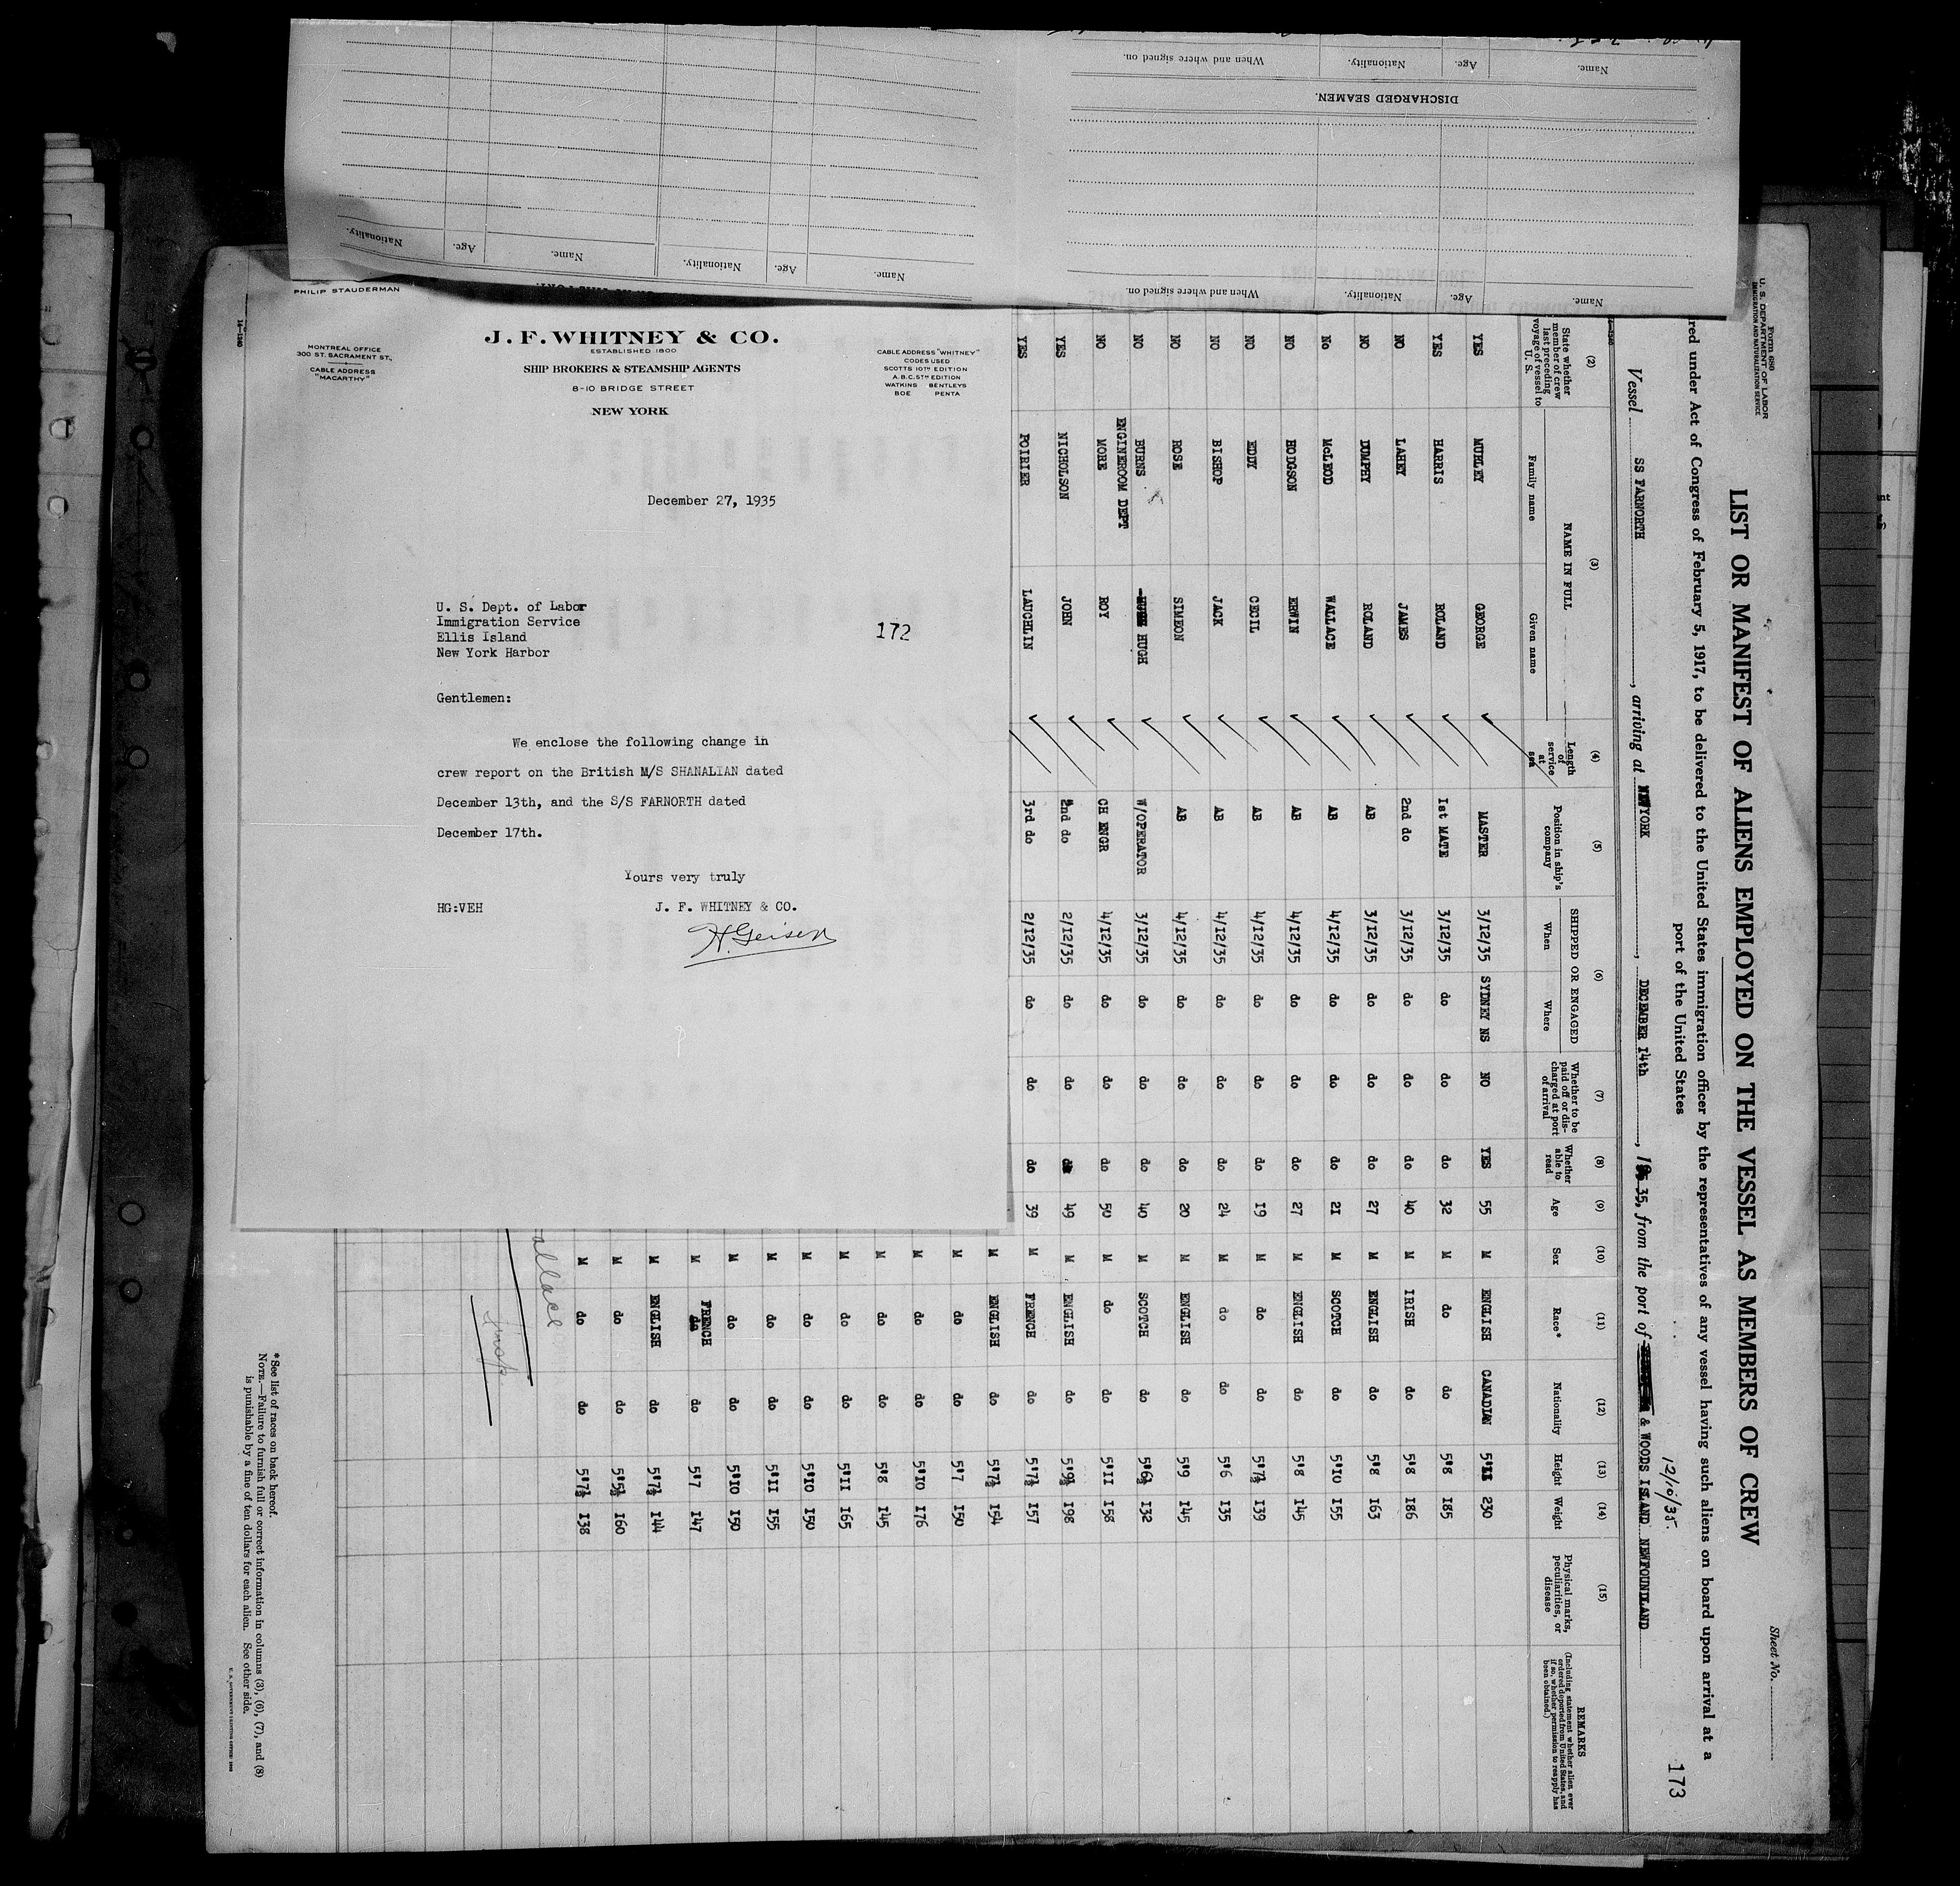 PHILIP STAUDERMAN
MONTREAL OFFICE
300 ST. SACRAMENT ST.,
CABLE ADDRESS
"MACARTHY"
J. F. WHITNEY & CO.
ESTABLISHED 1800
SHIP BROKERS & STEAMSHIP AGENTS
8-10 BRIDGE STREET
NEW YORK
CABLE ADDRESS "WHITNEY"
CODES USED
SCOTTS 10TH EDITION
A.B.C. 5TH EDITION
WATKINS BENTLEYS
BOE PENTA
December 27, 1935
U. S. Dept. of Labor
Immigration Service
Ellis Island
New York Harbor
172
Gentlemen:
We enclose the following change in
crew report on the British M/S SHANALIAN dated
December 13th, and the S/S FARNORTH dated
December 17th.
Yours very truly
HG:VEH J. F. WHITNEY & CO.
H. Geisen
Name. Age. Nationality. When and where signed on.
DISCHARGED SEAMEN.
Name. Age. Nationality. When and where signed on.
Name. Age. Nationality. Name. Age. Nationality.
Form 680
U. S. DEPARTMENT OF LABOR
IMMIGRATION AND NATURALIZATION SERVICE
Sheet No.
LIST OR MANIFEST OF ALIENS EMPLOYED ON THE VESSEL AS MEMBERS OF CREW
173
red under Act of Congress of February 5, 1917, to be delivered to the United States immigration officer by the representatives of any vessel having such aliens on board upon arrival at a
port of the United States
12/10/35.
Vessel SS FARNORTH, arriving at NEWYORK, DECEMBER 14th, 1935, from the port of & WOODS ISLAND NEWFOUNDLAND
(2) (3) (4) (5) (6) (7) (8) (9) (10) (11) (12) (13) (14) (15)
State whether member of crew last preceding voyage of vessel to U. S.
NAME IN FULL
Family name Given name
Length of service at sea
Position in ship's company
SHIPPED OR ENGAGED
When Where
Whether to be paid off or discharged at port of arrival
Whether able to read
Age
Sex
Race*
Nationality
Height
Weight
Physical marks, peculiarities, or disease
REMARKS
(Including statement whether alien ever ordered deported from United States, and if so, whether permission to reapply has been obtained.)
YES MURLEY GEORGE MASTER 3/12/35 SYDNEY NS NO YES 55 M ENGLISH CANADIAN 5'11 230
YES HARRIS ROLAND 1st MATE 3/12/35 do do do 32 M do do 5'8 185
NO LAHEY JAMES 2nd do 3/12/35 do do do 40 M IRISH do 5'8 186
NO DUMPHY ROLAND AB 3/12/35 do do do 27 M ENGLISH do 5'8 163
No McLEOD WALLACE AB 4/12/35 do do do 21 M SCOTCH do 5'10 155
NO HODGSON ERWIN AB 4/12/35 do do do 27 M ENGLISH do 5'8 145
NO EDDY CECIL AB 4/12/35 do do do 19 M do do 5'7½ 139
NO BISHOP JACK AB 4/12/35 do do do 24 M do do 5'6 135
NO ROSE SIMEON AB 4/12/35 do do do 20 M ENGLISH do 5'9 145
NO BURNS HUGH W/OPERATOR 3/12/35 do do do 40 M SCOTCH do 5'6½ 132
ENGINEROOM DEPT
NO MORE ROY CH ENGR 4/12/35 do do do 50 M do do 5'11 158
YES NICHOLSON JOHN 2nd do 2/12/35 do do do 49 M ENGLISH do 5'9½ 198
YES POIRIER LAUCHLIN 3rd do 2/12/35 do do do 39 M FRENCH do 5'7½ 157
M ENGLISH do 5'7½ 154
M do do 5'7 150
M do do 5'10 176
M do do 5'8 145
M do do 5'11 165
M do do 5'10 150
M do do 5'11 155
M do do 5'10 150
M FRENCH do 5'7 147
M ENGLISH do 5'7½ 144
M do do 5'5½ 160
M do do 5'7½ 138
allace
Insp.
*See list of races on back hereof.
NOTE.—Failure to furnish full or correct information in columns (3), (6), (7), and (8)
is punishable by a fine of ten dollars for each alien. See other side.
U. S. GOVERNMENT PRINTING OFFICE
14—1240